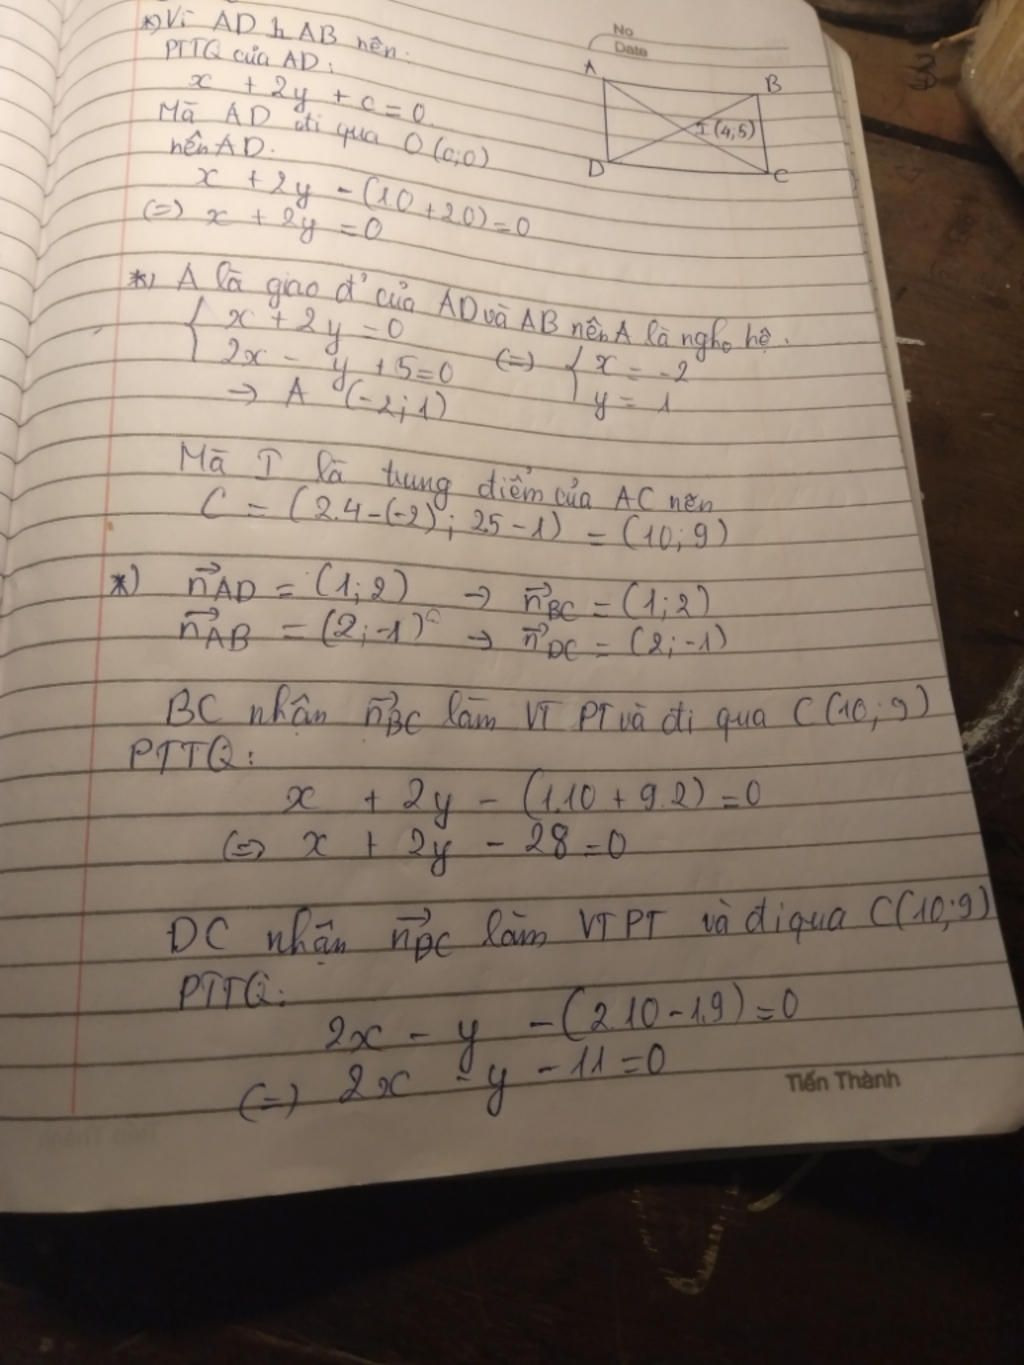 *) Vì AD ⊥ AB nên:
PTTQ của AD:
x + 2y + c = 0
Mà AD đi qua O (0;0)
nên AD.
x + 2y - (1.0 + 2.0) = 0
(=) x + 2y = 0
No
Date
A
B
I (4;5)
D
C
*) A là giao đ' của AD và AB nên A là ngho hệ.
{ x + 2y = 0
2x - y + 5 = 0 (=) { x = -2
y = 1
→ A (-2; 1)
Mà I là trung điểm của AC nên
C = (2.4 - (-2); 2.5 - 1) = (10; 9)
*) n⃗AD = (1; 2) → n⃗BC = (1; 2)
n⃗AB = (2; -1) → n⃗DC = (2; -1)
BC nhận n⃗BC làm VTPT và đi qua C (10; 9)
PTTQ:
x + 2y - (1.10 + 9.2) = 0
(=) x + 2y - 28 = 0
DC nhận n⃗DC làm VTPT và đi qua C (10; 9)
PTTQ:
2x - y - (2.10 - 1.9) = 0
(=) 2x - y - 11 = 0
Tiến Thành